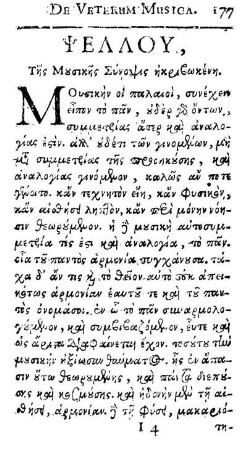 DE VETERUM MUSICA. 177
ΨΕΛΛΟΥ,
Τῆς Μυσικῆς Σύνοψις ἠκριβωμένη.
Μουσικὴν οἱ παλαιοὶ, συνέχειν
εἶπον τὸ πᾶν, ὐδὲν ὄντων,
συμμετρίας ἄτερ καὶ ἀναλο-
γίας ἐςιν. ἀλλ' ὐδέ τι τῶν γινομένων, μὴ
μετὰ συμμετρίας τῆς προσηκύσης, καὶ
ἀναλογίας γινόμενον, καλῶς ἄν ποτε
γένοιτο. κἂν τεχνητὸν εἴη, κἂν φυσικὸν,
κἂν αἰσθήσει ληπτὸν, κἂν περὶ μόνην νόη-
σιν θεωρούμενον. ἡ ἢ μυσικὴ αὐτοσυμ-
μετρία τίς ἐςι καὶ ἀναλογία, τὸ παν-
τὸς ἁρμονία τυγχάνυσα, τά-
χα δ' ἄν τις καὶ τὸ θεῖον αὐτὸ ἀπει-
κότως ἁρμονίαν ἑαυτῦ τε καὶ τῦ παν-
τὸς ὀνομάσοι. ἐν ᾧ τὸ πᾶν συναρμολο-
γύμενον, καὶ συμβιβαζόμενον, εὖτε καὶ
ὡς διαφαίνεται ἔχον. τοσύτυ τὴν
μυσικὴν ἠξίωσαν θαύματος. ἧς ἐν ἅπα-
σιν ὕτω θεωρυμένης, καὶ πάντα διεπύ-
σης καὶ κοσμύσης. καὶ ἡδονὴν μὲν τῇ αἰ-
σθήσει, ἁρμονίαν ἢ τῇ φύσει, μακαριό-
I 4 τη-